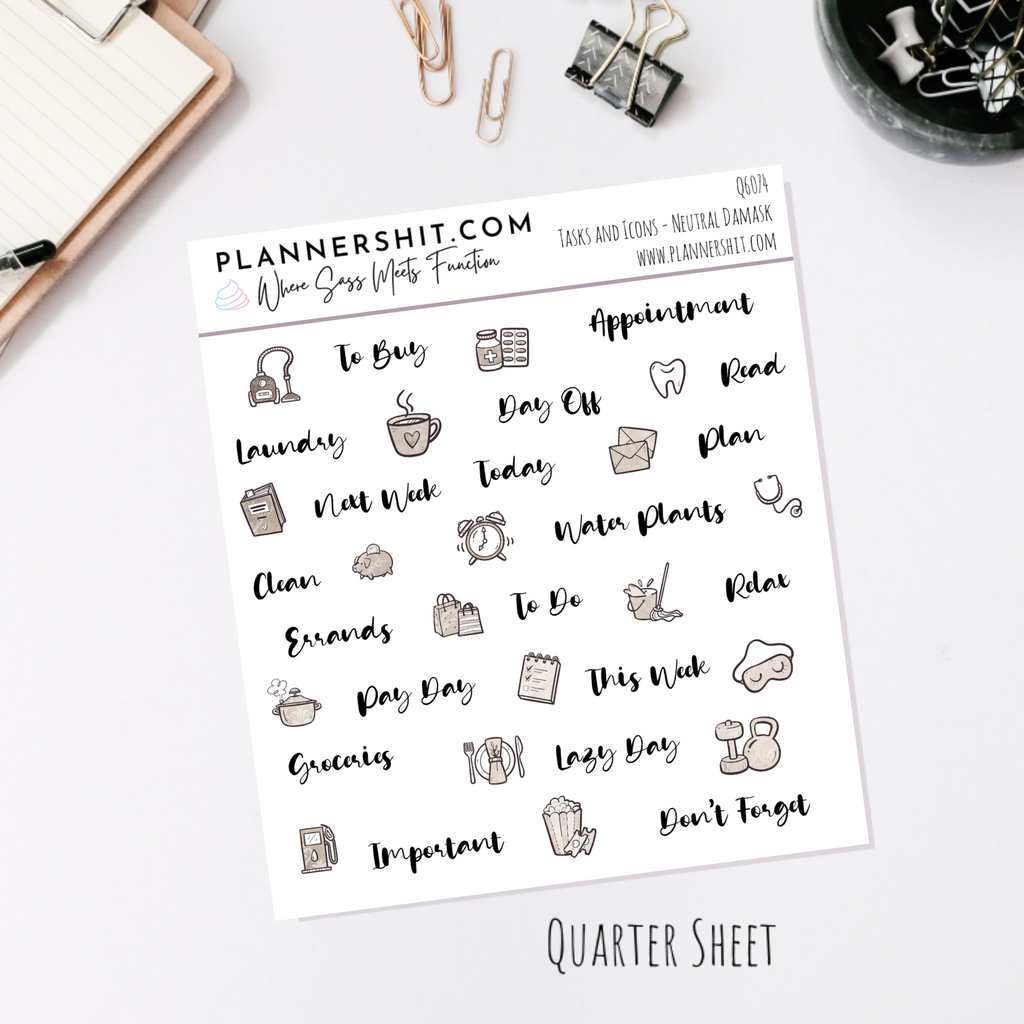 PLANNERSHIT.COM
Where Sass Meets Function
Q6074
Tasks and Icons - Neutral Damask
www.plannershit.com
To Buy
Appointment
Read
Day Off
Laundry
Plan
Today
Next Week
Water Plants
Clean
Relax
To Do
Errands
This Week
Pay Day
Lazy Day
Groceries
Don't Forget
Important
Quarter Sheet